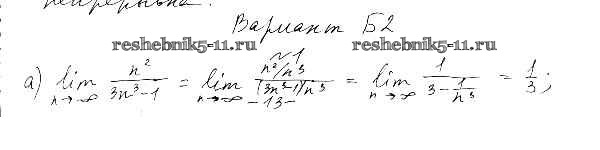 непрерывна.
Вариант Б2
reshebnik5-11.ru reshebnik5-11.ru
~1
а) lim n→∞ n²/(3n³-1) = lim n→∞ (n²/n³)/((3n³-1)/n³) = lim n→∞ 1/(3-1/n³) = 1/3;
-13-